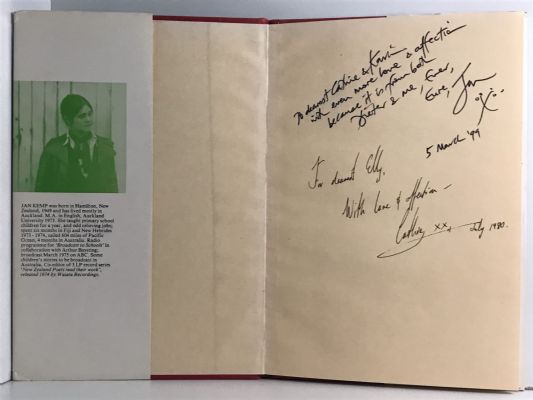 JAN KEMP was born in Hamilton, New
Zealand, 1949 and has lived mostly in
Auckland. M.A. in English, Auckland
University 1973. She taught primary school
children for a year, and odd relieving jobs;
spent six months in Fiji and New Hebrides
1973 - 1974, sailed 804 miles of Pacific
Ocean, 4 months in Australia. Radio
programme for 'Broadcast to Schools' in
collaboration with Arthur Baysting;
broadcast March 1975 on ABC. Some
children's stories to be broadcast in
Australia. Co-editor of 3 LP record series
'New Zealand Poets read their work',
released 1974 by Waiata Recordings.
To dearest Cathie & Kevin
with even more love & affection
because it is from both
Dieter & me, Ever,
Ever, Jan
x
5 March '99
For dearest Elly,
With love & affection –
xx July 1980.